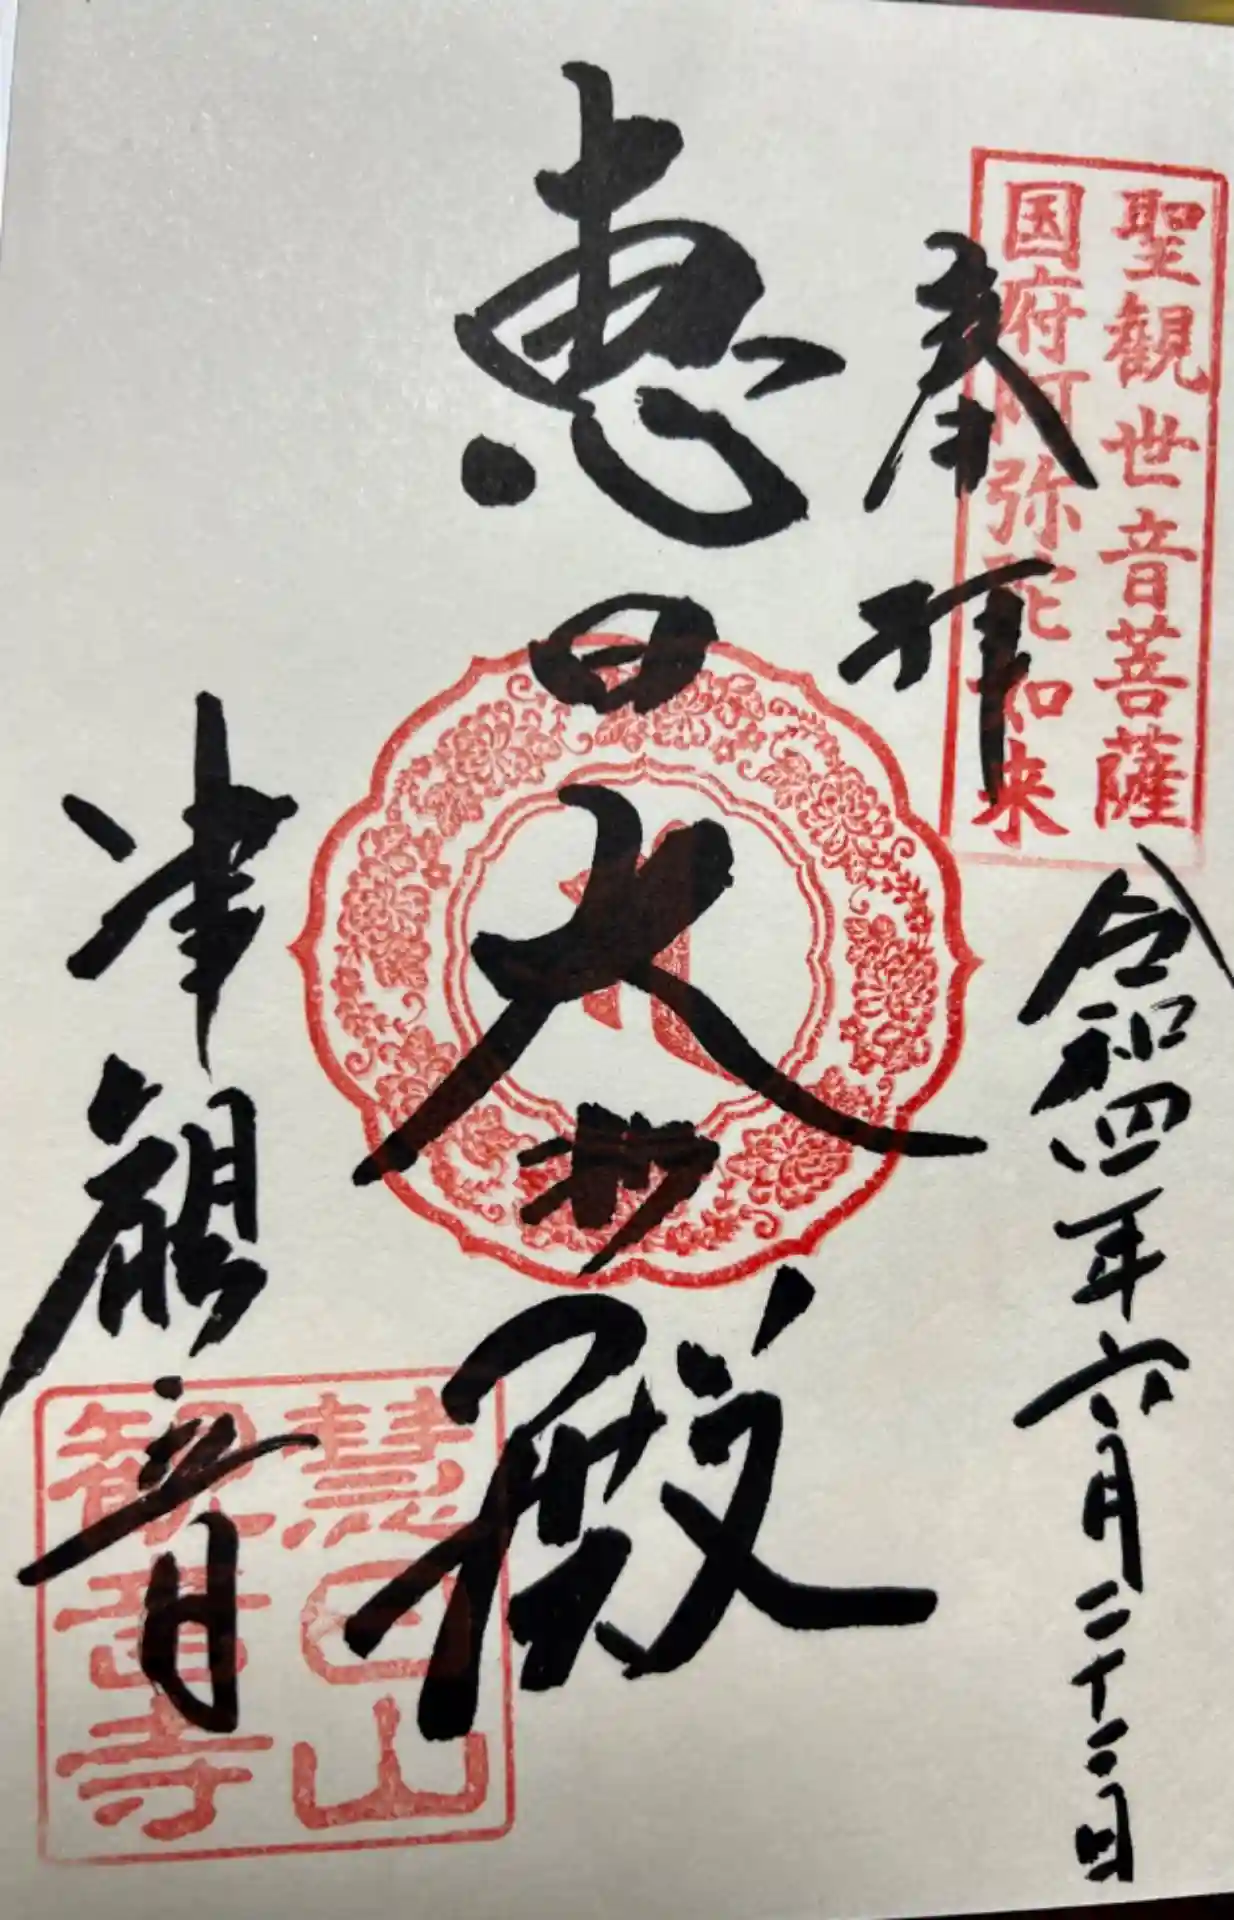 聖観世音菩薩
国府阿弥陀如来
奉拝
令和四年六月二十二日
恵日大悲殿
津観音
慧日山
観音寺